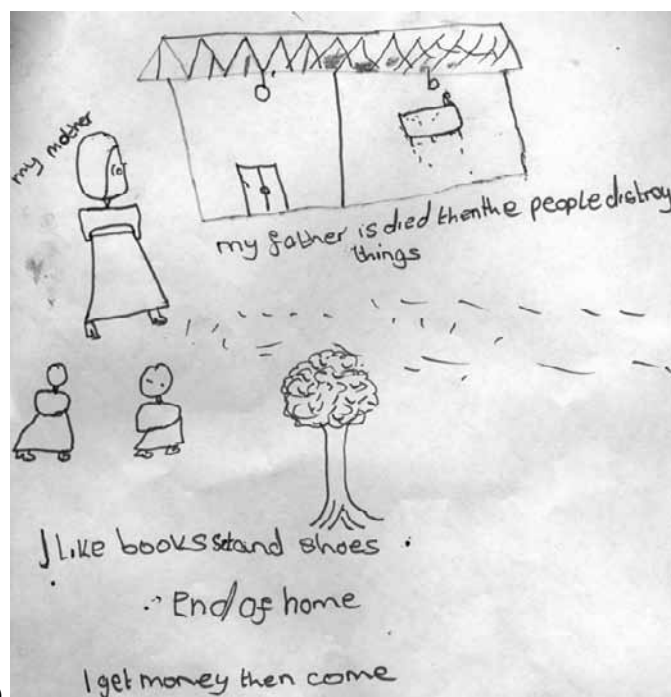 my mother
my father is died then the people distroy
things
I Like books and shoes
End of home
I get money then come